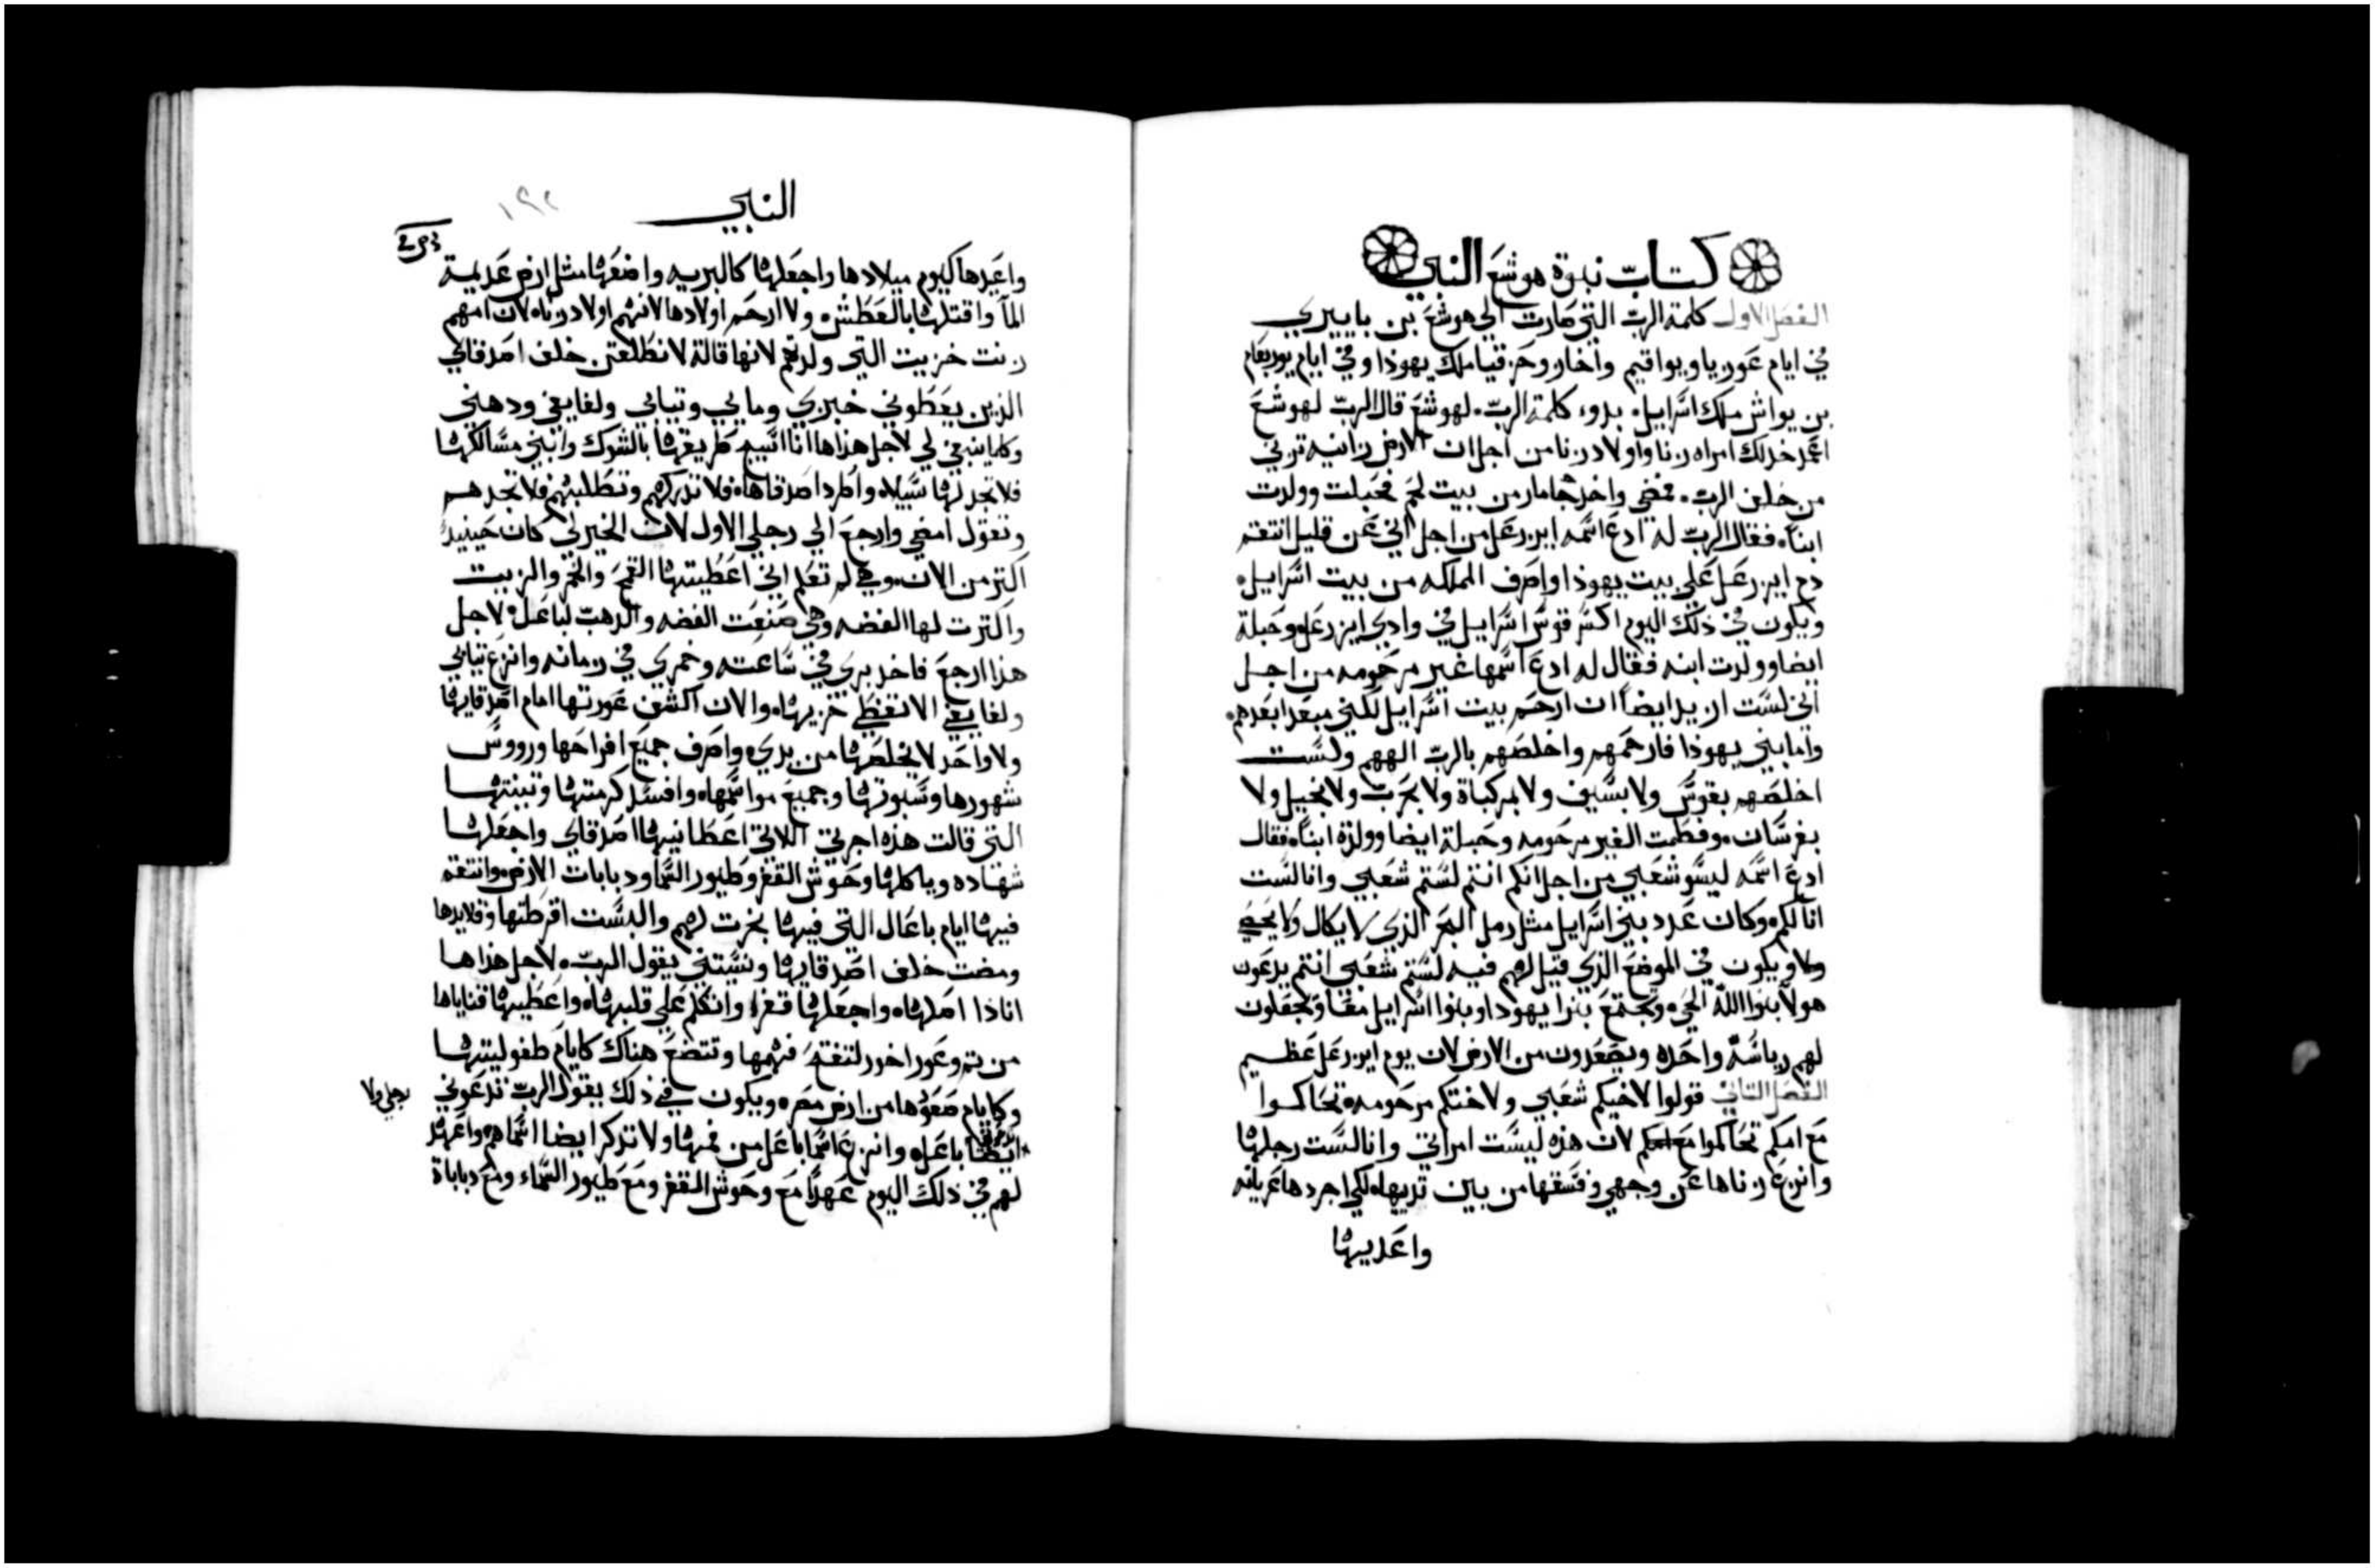 كتاب نبوة هوشع النبي
الفصل الاول كلمة الرب التي صارت الي هوشع بن باييري
في ايام عوزيا ويواقيم واخاز وحزقيا ملك يهوذا وفي ايام يوربعام
بن يواش ملك اسراييل بدوء كلمة الرب لهوشع قال الرب لهوشع
اعمد خد لك امراه زنا واولاد زنا من اجل ان الارض زانيه تزني
من خلف الرب فمضي واخد جامار من بيت لحم فحبلت وولدت
ابنا فقال الرب له ادع اسمه ايزرعل من اجل اني عن قليل انتقم
دم ايزرعل علي بيت يهوذا واصرف المملكه من بيت اسراييل
ويكون في ذلك اليوم اكسر قوس اسراييل في وادي ايزرعل وحبلة
ايضا وولدت ابنه فقال له ادع اسمها غير مرحومه من اجل
اني لست اريد ايضا ان ارحم بيت اسراييل لكني مبعدا ابعدهم
واما بني يهوذا فارحمهم واخلصهم بالرب الههم ولست
اخلصهم بقوس ولا بسيف ولا بمركباة ولا بحرب ولا بخيل ولا
بفرسان وفطمت الغير مرحومه وحبلة ايضا وولدة ابنا فقال
ادع اسمه ليسو شعبي من اجل انكم انتم لستم شعبي وانا لست
انا لكم وكان عدد بني اسراييل مثل رمل البحر الذي لا يكال ولا يحصي
ويكون في الموضع الذي قيل لهم فيه لستم شعبي انتم يدعون
هولا بنوا الله الحي وتجتمع بنوا يهودا وبنوا اسراييل معا وتجعلون
لهم رياسة واحده ويصعدون من الارض لان يوم ايزرعل عظيم
الفصل التاني قولوا لاخيكم شعبي ولاختكم مرحومه تحاكموا
مع امكم تحاكموا لان هذه ليست امراتي وانا لست رجلها
وانزع زناها عن وجهي وفسقها من بين تدييها لكي اجردها عريانه
واعديها
النبي
١٩٢
واعيدها كيوم ميلادها واجعلها كالبريه واضعها مثل ارض عديمة
الما واقتلها بالعطش ولا ارحم اولادها لانهم اولاد زناه لان امهم
زنت خزيت التي ولدتهم لانها قالة لانطلقن خلف اصدقاي
الذين يعطوني خبزي ومايي وتيابي ولفايفي ودهني
وكلما ينبغي لي لاجل هذا ها انا اسيج طريقها بالشوك وابني مسالكها
فلا تجد لها سبيلا واطرد اصدقاها فلا تدركهم وتطلبهم فلا تجدهم
وتقول امضي وارجع الي رجلي الاول لان الخير لي كان حينيد
اكتر من الان وهي لم تعلم اني اعطيتها القمح والخمر والزيت
واكترت لها الفضه وهي صنعت الفضه والدهب لباعل لاجل
هذا ارجع فاخد بري في ساعته وخمري في زمانه وانزع تيابي
ولفايفي الا تغطي خزيها والان اكشف عورتها امام اصدقايها
ولا واحد لا يخلصها من يدي واصرف جميع افراحها ورووس
شهورها وسبوتها وجميع مواسمها وافسد كرمتها وتينتها
التي قالت هذه اجرتي اللاتي اعطانيها اصدقاي واجعلها
شهاده وياكلها وحوش القفر وطيور السما ودبابات الارض وانتقم
فيها ايام باعال التي فيها بخرت لهم والبست اقرطتها وقلايدها
ومضت خلف اصدقايها ونستني يقول الرب لاجل هذا ها
انا ذا اضلها واجعلها قفرا واتكلم علي قلبها واعطيها قناياها
من تم وعور اخور لتفتح فهمها وتتضع هناك كايام طفوليتها
وكايام صعودها من ارض مصر ويكون في ذلك يقول الرب تدعوني
رجلي ولا
ايضا باعل وانزع اسما باعل من فمها ولا تذكر ايضا اسماهم واعهد
لهم في ذلك اليوم عهدا مع وحوش القفر ومع طيور السماء ومع دباباة